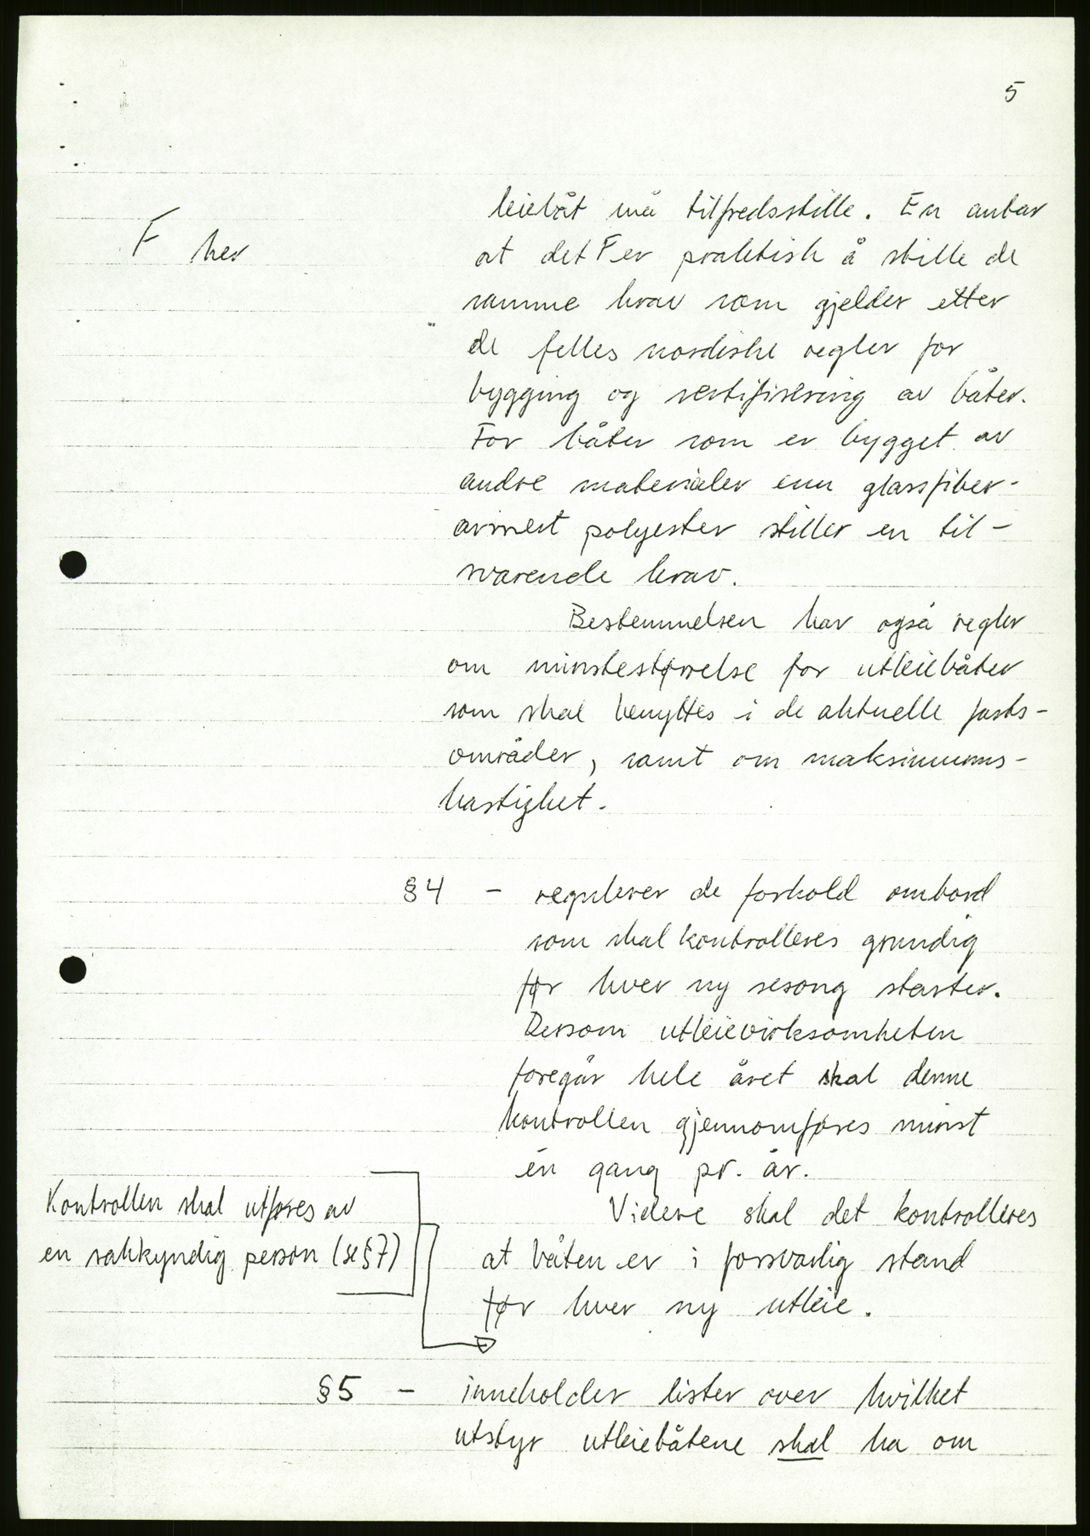 5
leiebåt må tilfredsstille. En antar
F her
at det F er praktisk å stille de
samme krav som gjelder etter
de felles nordiske regler for
bygging og sertifisering av båter.
For båter som er bygget av
andre materialer enn glassfiber-
armert polyester stiller en til-
svarende krav.
Bestemmelsen har også regler
om minstestørrelse for utleiebåter
som skal benyttes i de aktuelle farts-
områder, samt om maksimums-
hastighet.
§4 - regulerer de forhold ombord
som skal kontrolleres grundig
før hver ny sesong starter.
Dersom utleievirksomheten
foregår hele året skal denne
kontrollen gjennomføres minst
én gang pr. år.
Videre skal det kontrolleres
at båten er i forsvarlig stand
før hver ny utleie.
Kontrollen skal utføres av
en sakkyndig person (se §7)
§5 - inneholder lister over hvilket
utstyr utleiebåtene skal ha om